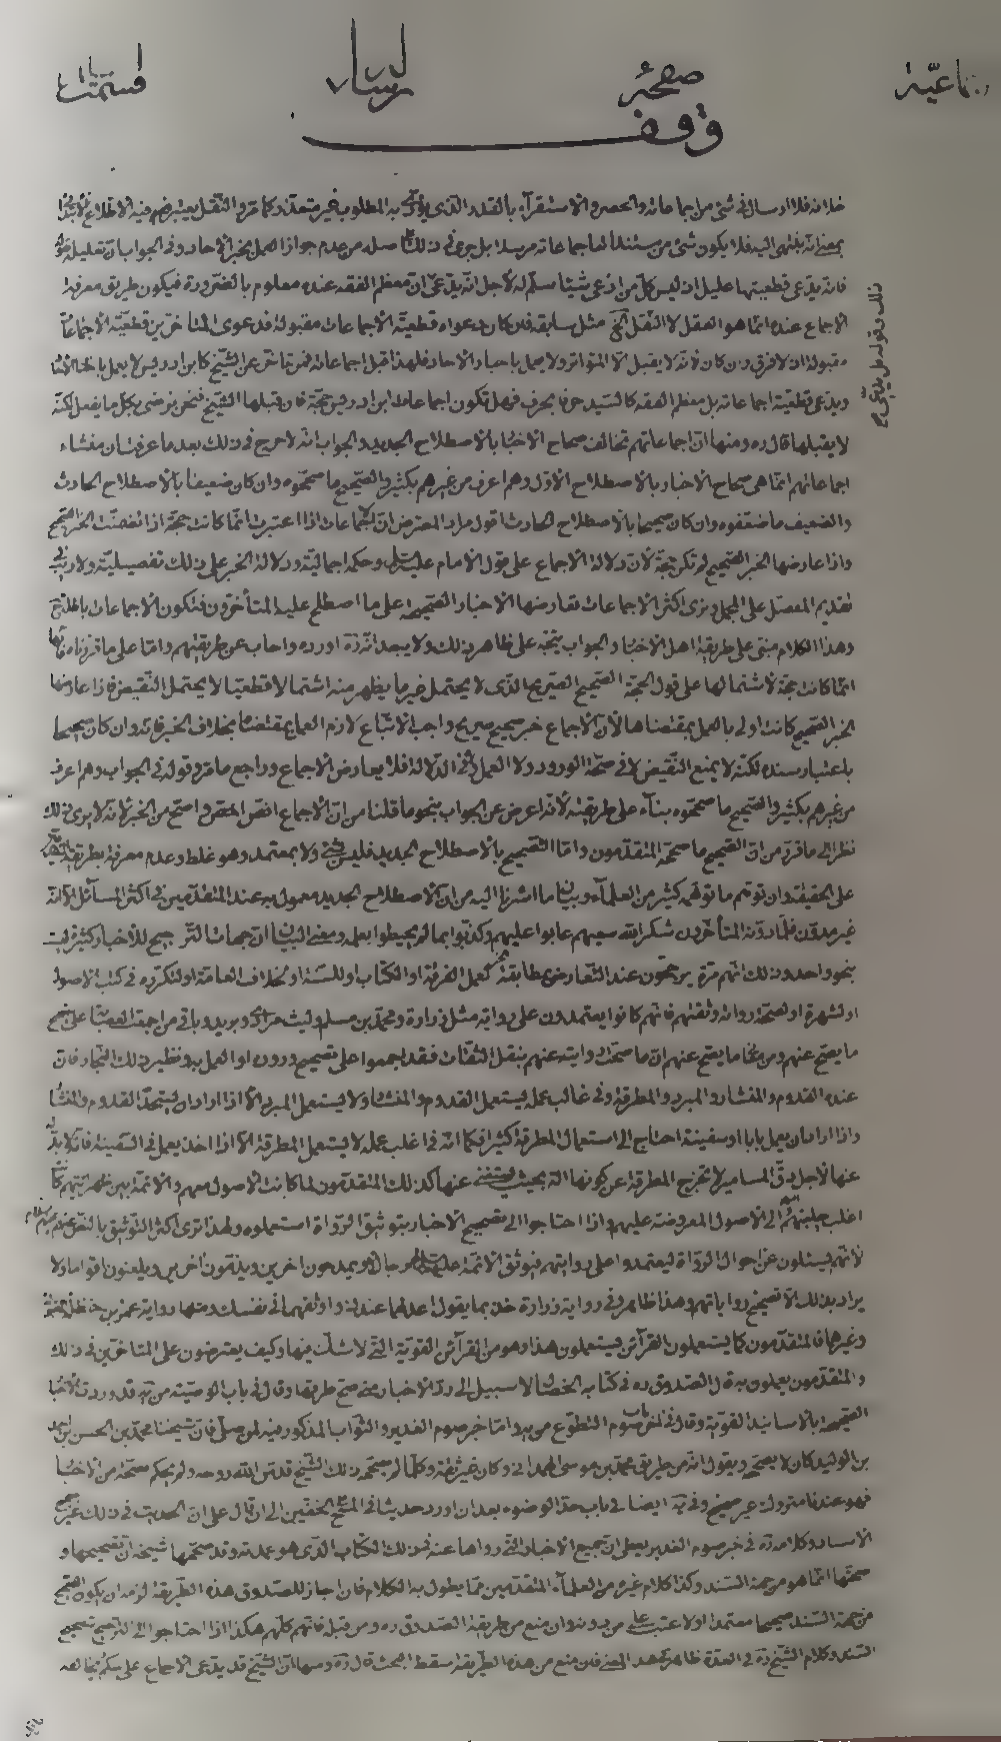 صفحة
وقف
ذلك قوله على
خلافه فلا ارسال في شئ من اجماعاته والحصر والاستقراء بالقدر الذي يؤل به المطلوب غير متعذر كما قرر والنقل يعتبر فيه الاطلاع
بمعنى انه ينتهى اليه فلا يكون شئ من مستندات اجماعاته مرسلا بل جرى في ذلك على اصله من عدم جواز العمل بخبر الآحاد وفي الجواب ان تعليله
فانه يدعى قطعيتها عليل اذ ليس كل من ادعى شيئا سلم له لأجل انه يدعى ان معظم الفقه عنده معلوم بالضرورة فيكون طريق معرفة
الاجماع عنده انما هو العقل لا النقل مثل سابقه فان كان دعواه قطعية الاجماعات مقبولة فدعوى المتأخرين قطعية الاجماعات
مقبولة اذ لا فرق وان كان لأنه لا يقبل الا المتواتر ولا يعمل باخبار الآحاد فلهذا قبل اجماعاته فمن تأخر عن الشيخ كابن ادريس لا يعمل باخبار الآحاد
ويدعى قطعية اجماعاته بل معظم الفقه كالسيد حرفا بحرف فهل تكون اجماعات ابن ادريس حجة فان قبلها الشيخ فنحن نرضى بكل ما يفعل لكنه
لا يقبلها قال ره ومنها ان اجماعاتهم تخالف صحاح الاخبار بالاصطلاح الجديد والجواب انه لا حرج في ذلك بعد ما عرفت ان منشاء
اجماعاتهم انما هى صحاح الاخبار بالاصطلاح الاول وهم اعرف من غيرهم بكثير والصحيح ما صححوه وان كان ضعيفا بالاصطلاح الحادث
والضعيف ما ضعفوه وان كان صحيحا بالاصطلاح الحادث اقول مراد المعترض ان الاجماعات اذا اعتبرت انما كانت حجة اذا تضمنت الخبر الصحيح
واذا عارضها الخبر الصحيح لم تكن حجة لأن دلالة الاجماع على قول الامام عليه السلام وحكمه اجمالية ودلالة الخبر على ذلك تفصيلية ولا ريب في
تقديم المفصل على المجمل ونرى اكثر الاجماعات تعارضها الاخبار الصحيحة على ما اصطلح عليه المتأخرون فتكون الاجماعات باطلة
وهذا الكلام مبنى على طريقة اهل الاخبار والجواب يتجه على ظاهر ذلك ولا يبعد انه ره اورده واجاب عن طريقتهم واما على ما قررناه
انما كانت حجة لاشتمالها على قول الحجة الصحيح الصريح الذى لا يحتمل غير ما يظهر منه اشتمالا قطعيا لا يحتمل النقيض فاذا عارضها
الخبر الصحيح كانت اولى بالعمل بمقتضاها لأن الاجماع خبر صحيح صريح واجب الاتباع لازم العمل بمقتضاه بخلاف الخبر فانه وان كان صحيحا
باعتبار سنده لكنه لا يمنع النقيض لا في صحة الورود ولا العمل ولا في الدلالة فلا يعارض الاجماع وراجع ما مر وقوله في الجواب وهم اعرف
من غيرهم بكثير والصحيح ما صححوه بناء على طريقته لأنه اعرض عن الجواب بنحو ما قلنا من ان الاجماع انص النصوص واصح من الخبر لأنه لا يرى ذلك
نظرا الى ما قرره من ان الصحيح ما صححه المتقدمون واما التصحيح بالاصطلاح الجديد فليس بشئ ولا بمعتمد وهو غلط وعدم معرفة بطريقة
على الحقيقة وان توهم ما توهمه كثير من العلماء وبيان ما اشرنا اليه من ان الاصطلاح الجديد معمول به عند المتقدمين في اكثر المسائل الا انه
غير مدون فلما دونه المتأخرون شكر الله سعيهم عابوا عليهم وكذبوا بما لم يحيطوا بعلمه ومعنى البيان ان جهات الترجيح للأخبار كثيرة ليست
بنحو واحد وذلك انهم مرة يرجحون عند التعارض بمطابقة لعمل الفرقة او الكتاب او للسنة او بخلاف العامة او لتكرره في كتب الاصول
او لشهرة او لصحة رواته وثقتهم فانهم كانوا يعتمدون على رواية مثل زرارة ومحمد بن مسلم وليث المرادى وبريد وباقى من اجمعت العصابة على تصحيح
ما يصح عنهم ومن معنى ما يصح عنهم ان ما صحت روايته عنهم بنقل الثقات فقد اجمعوا على تصحيح وروده او العمل به ونظير ذلك النجار فان
عنده القدوم والمنشار والمبرد والمطرقة وفي غالب عمله يستعمل القدوم والمنشار ولا يستعمل المبرد الا اذا اراد ان يستحد القدوم والمنشار
واذا اراد ان يعمل بابا او سفينة احتاج الى استعمال المطرقة كثيرا فكما انه في اغلب عمله لا يستعمل المطرقة الا اذا اخذ يعمل في السفينة فانه لا بد له
عنها لأجل دق المسامير لا تخرج المطرقة عن كونها آلة بحيث يستغنى عنها كذلك المتقدمون لما كانت الاصول معهم والائمة بين ظهرانيهم كان
اغلب طلبتهم الى الاصول المعروضة عليهم واذا احتاجوا الى تصحيح الاخبار بتوثيق الرواة استعملوه ولهذا ترى اكثر التوثيق بالنص عنهم عليهم السلام
لأنهم يسئلون عن احوال الرواة ليعتمدوا على روايتهم فيوثق الائمة عليهم السلام رجالا ويمدحون آخرين ويذمون آخرين ويلعنون اقواما ولا
يراد بذلك الا تصحيح رواياتهم وهذا ظاهر في رواية زرارة خذ بما يقول اعدلهما عندك واوثقهما في نفسك ومنها رواية عمر بن حنظلة
وغيرها فالمتقدمون كما يستعملون القرائن يستعملون هذا وهو من القرائن القوية التي لا شك فيها وكيف يعترضون على المتأخرين في ذلك
والمتقدمون يعملون به قال الصدوق ره في كتابه الخصال لا سبيل الى رد الاخبار متى صح طريقها وقال في باب الوصية من يه قد وردت الاخبار
الصحيحة بالاسانيد القوية وقال في آخر باب صوم التطوع من يه واما خبر صوم الغدير والثواب المذكور فيه لمن صامه فان شيخنا محمد بن الحسن بن احمد
بن الوليد كان لا يصححه ويقول انه من طريق محمد بن موسى الهمدانى وكان غير ثقة وكلما لم يصححه ذلك الشيخ قدس الله روحه ولم يحكم بصحته من الاخبار
فهو عندنا متروك غير صحيح وفي يه ايضا في باب حد الوضوء بعد ان اورد حديثا في المسح على الخفين الى ان قال على ان الحديث في ذلك غير صحيح
الاسناد وكلامه ره في خبر صوم الغدير يعطى ان جميع الاخبار التي رواها عنه في ذلك الكتاب الذى هو عمدته وقد صححها شيخه ان تصحيحها و
صحتها انما هو من جهة السند وكذا كلام غيره من العلماء المتقدمين مما يطول به الكلام فان اجاز للصدوق هذه الطريقة لزمه ان يكون الصحيح
من جهة السند صحيحا معتمدا اولا عتب على من دونه وان منع من طريقة الصدوق ره ومن قبله فانهم كلهم هكذا اذا احتاجوا الى الترجيح تصحيح
السند وكلام الشيخ ره في العدة ظاهر بهذا المعنى فان منع من هذه الطريقة سقط البحث قال ره ومنها ان الشيخ قد يدعى الاجماع على حكم يخالفه